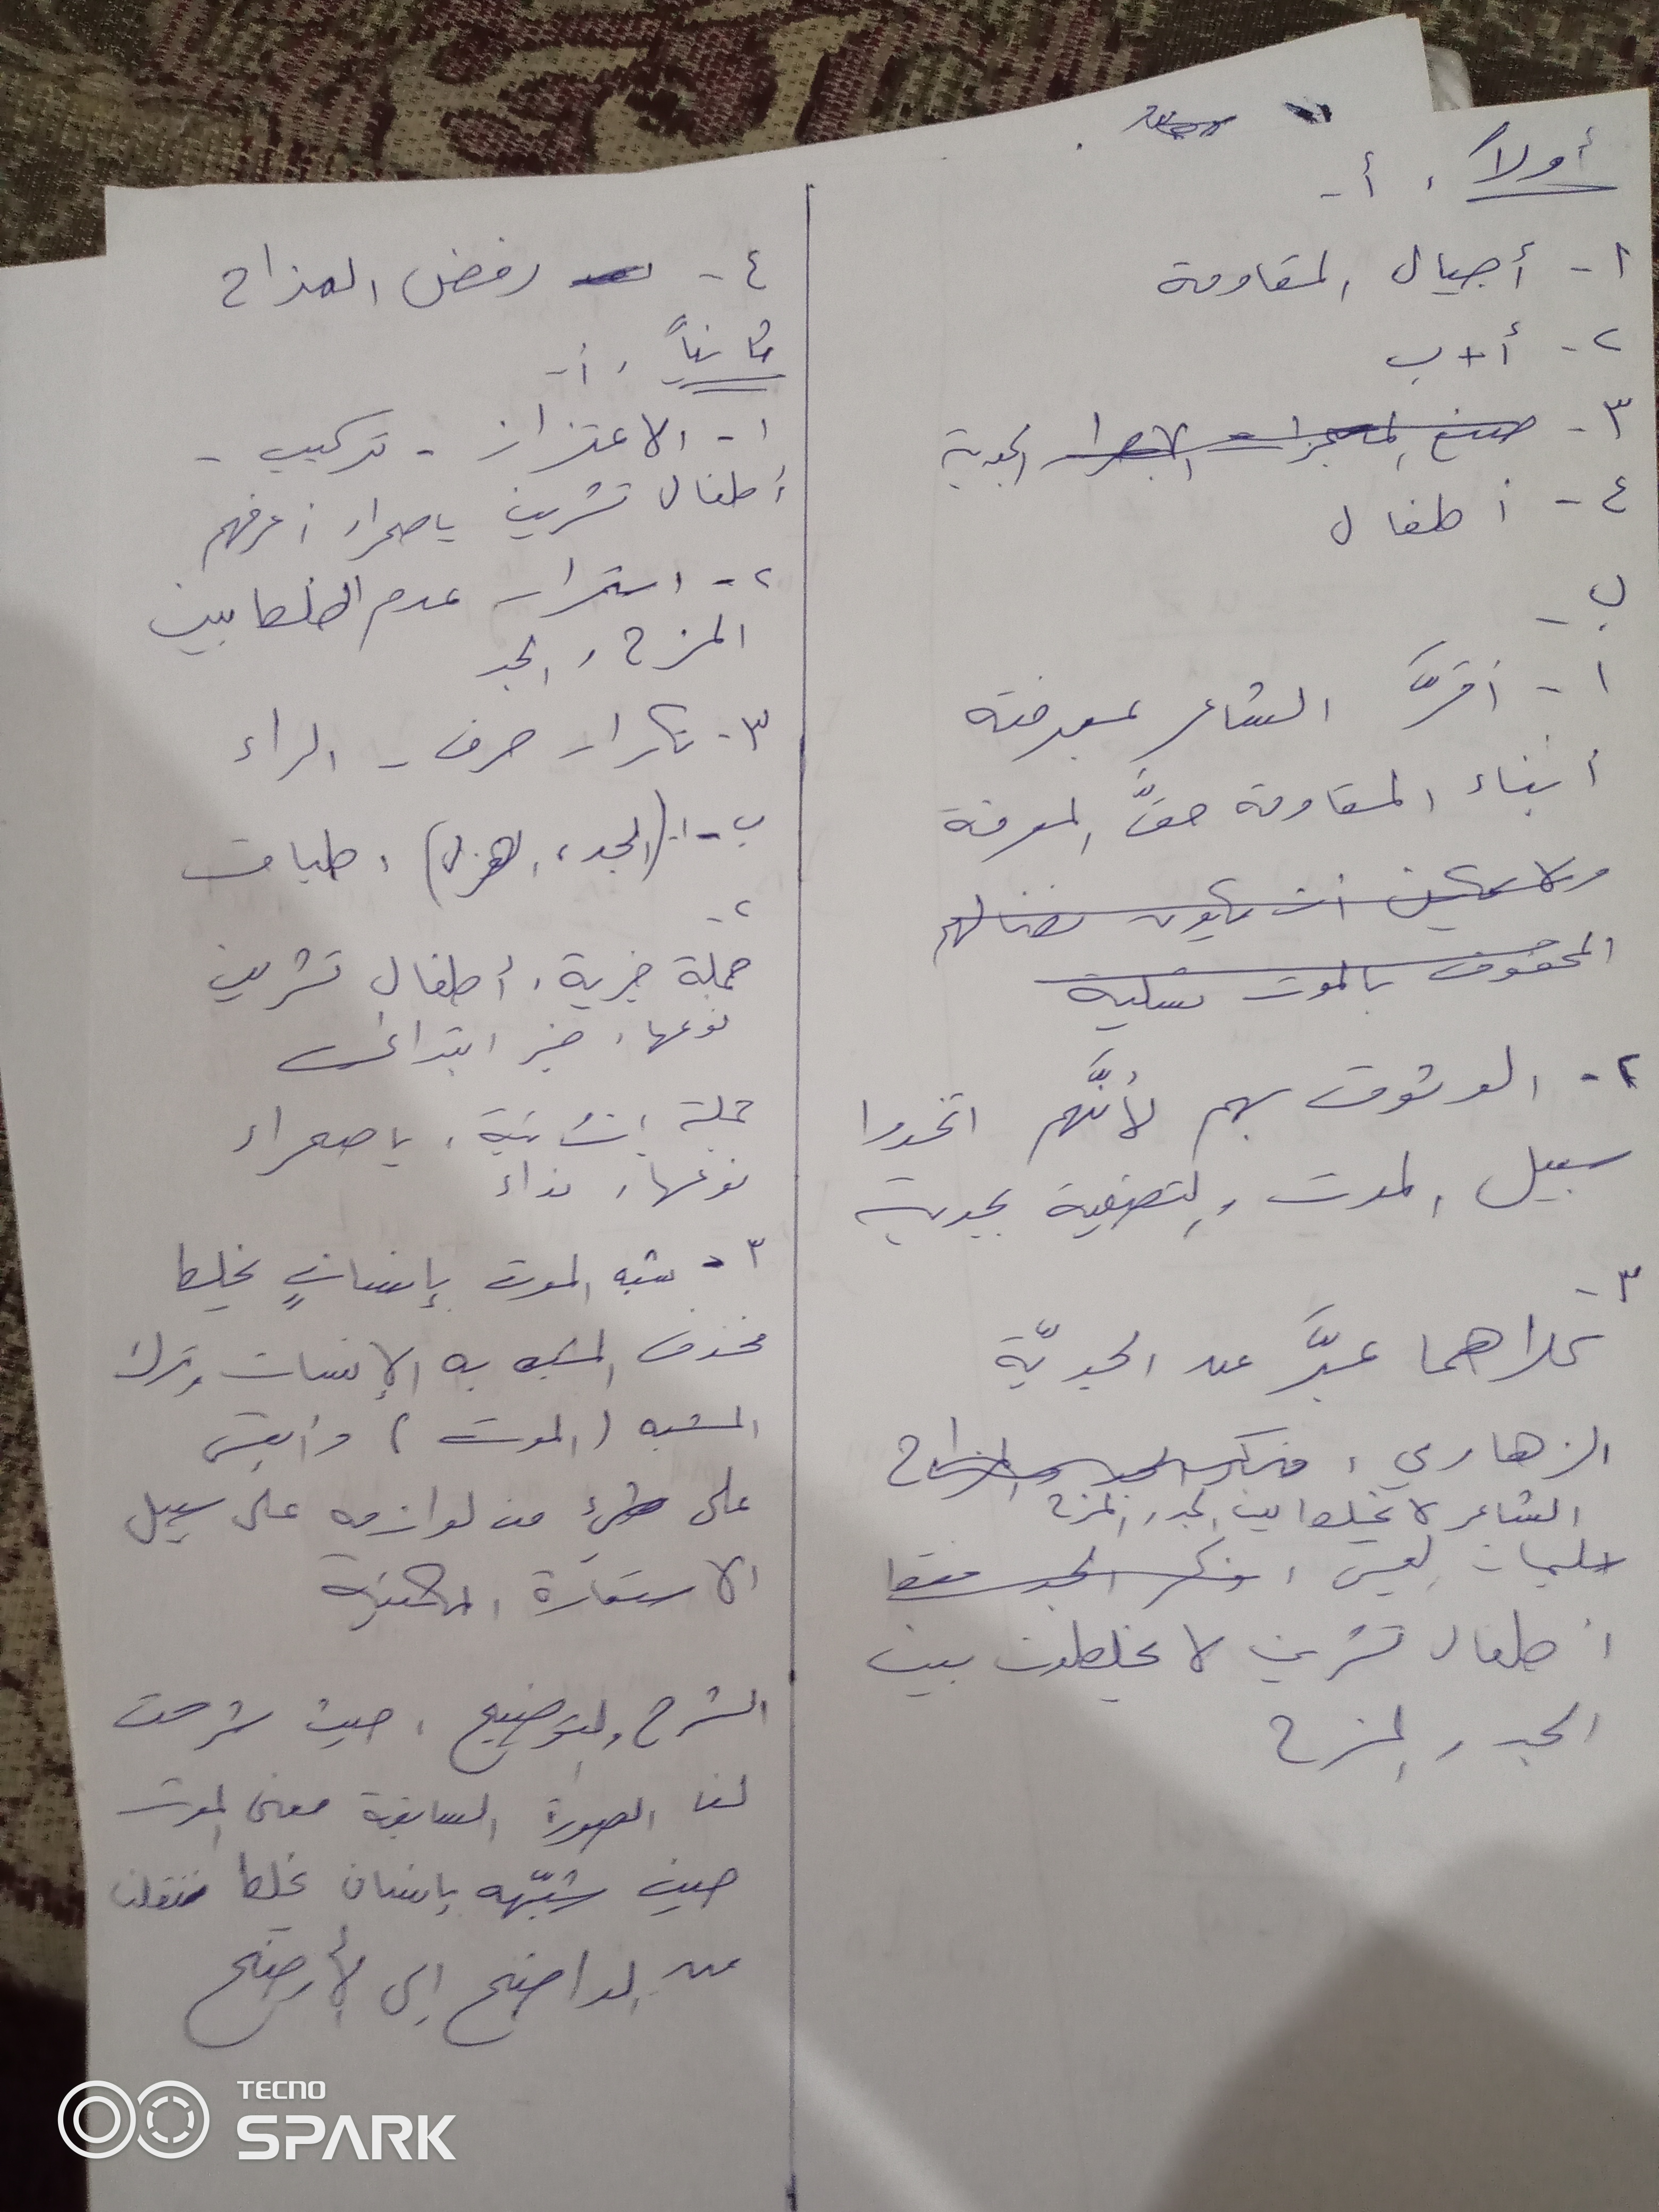 أولاً، أ -
١- أجيال المقاومة
٢- أ + ب
٣- صنع المعجزات الجدية
٤- أطفال
ب -
١- أقرَّ الشاعر بمعرفته
أبناء المقاومة حقَّ المعرفة
ولا يمكن أن يكون نضالهم
المحفوف بالموت تسلية
٢- الوثوق بهم لأنَّهم اتخذوا
سبيل الموت والتضحية بجدية
٣-
كلاهما عبَّر عن الجديّة
الزهاوي، فذكر الجد والمزاح
الشاعر لا يخلط بين الجد والمزح
سليمان العيسى، وذكر الجد فقط
أطفال تشرين لا يخلطون بين
الجد والمزح
٤- رفض المزاح
ثانياً، أ-
١- الاعتزاز - تركيب -
أطفال تشرين يا صحراء أعرفهم
٢- استمرار عدم الخلط بين
المزح والجد
٣- تكرار حرف - الراء
ب-١- (الجد، الهزل)، طباق
٢-
جملة خبرية، أطفال تشرين
نوعها، خبر ابتدائي
جملة إنشائية، يا صحراء
نوعها، نداء
٣- شبه الموت بإنسانٍ يخلط
فحذف المشبه به الإنسان وترك
المشبه (الموت) وأبقى
على شيء من لوازمه على سبيل
الاستعارة المكنية
الشرح والتوضيح، حيث شرحت
لنا الصورة السابقة معنى الموت
حين شبّهه بإنسان يخلط فنقلنا
من الواضح إلى الأوضح
TECNO
SPARK